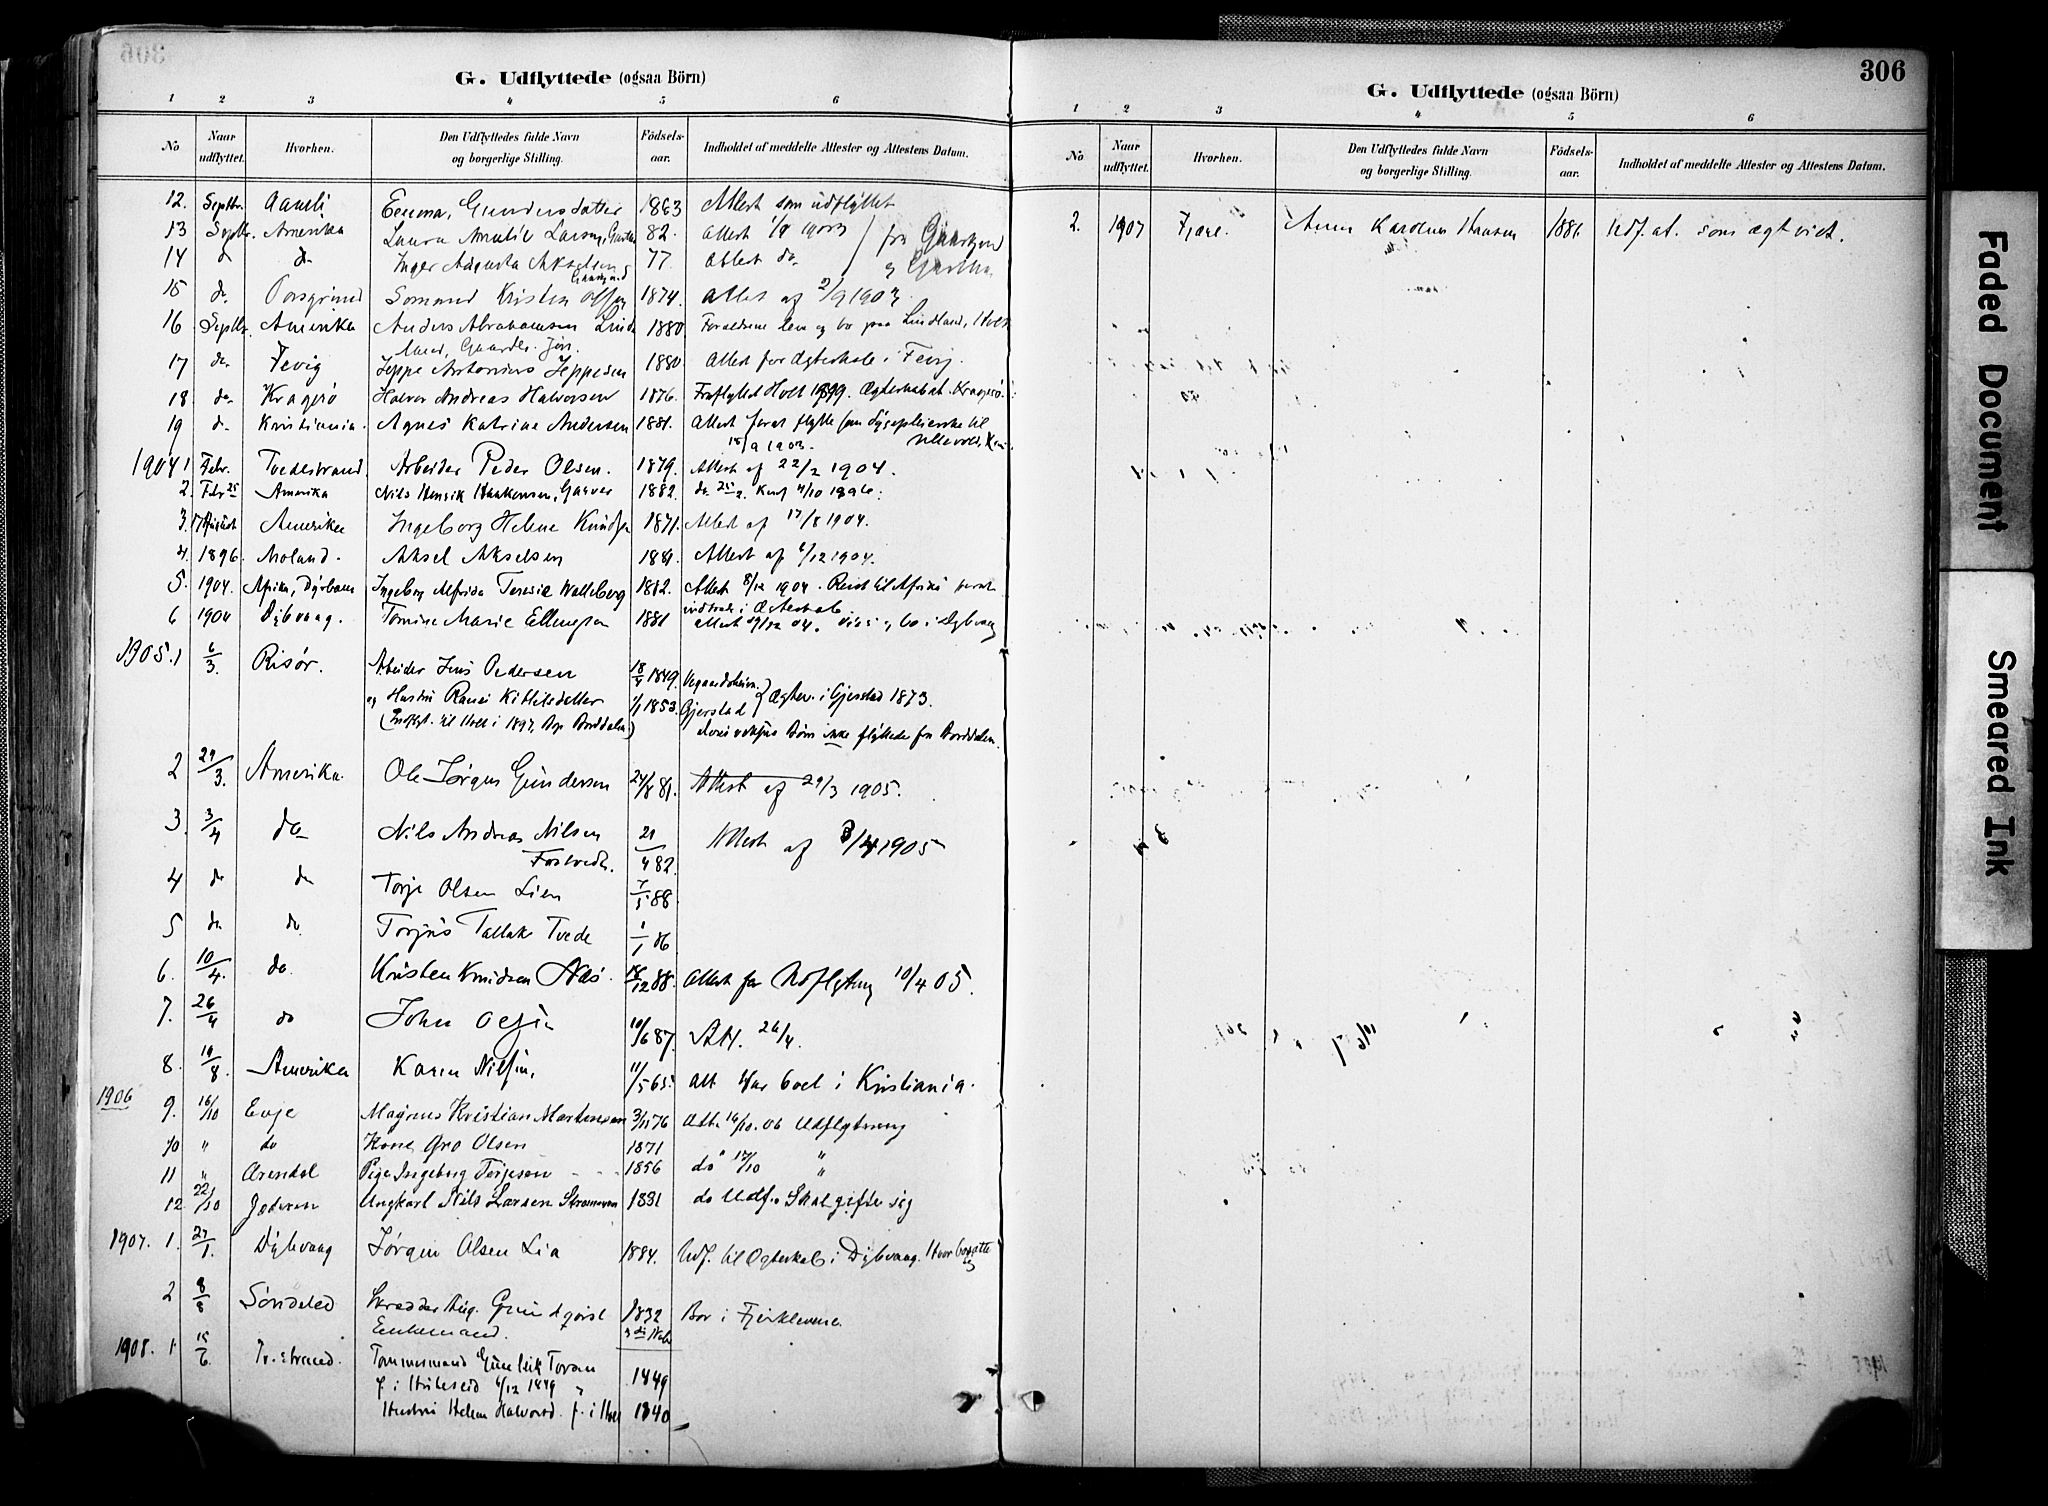 G. Udflyttede (ogsaa Börn)
1 2 3 4 5 6
No Naar udflyttet. Hvorhen. Den Udflyttedes fulde Navn og borgerlige Stilling. Födsels-aar. Indholdet af meddelte Attester og Attestens Datum.
12. Septbr. Aamli Emma, Gundersdatter 1863 Attest som udflyttet
13 Septbr. Amerika Laura Amalie Larsen, 82. Attest 1903 fra
14 do do Inger Augusta Akselsen 77 Attest do
15 do Porsgrund Gomund Kristen Olsen 1874. Attest af 2/9 1903.
16 Septbr. Amerika Anders Abrahamsen Lind- 1880 Forældrene leve og bo paa Lindland, Holt
land, Gaardbr. Søn.
17 do Fevig Jeppe Antonius Jeppesen 1880 Attest for Ægteskab i Fevig.
18 do Kragerö Halvor Andreas Halvorsen 1876. Fraflyttet Holt 1899. Ægteskabsat. Kragerö.
19 do Kristiania. Agnes Katrine Andersen 1881. Attest for at flytte som Sygepleierske til
15/9 1903. Ullevold, Kria.
1904 1 Febr. Tvedestrand. Arbeider Peder Olsen. 1879. Attest af 22/2 1904.
2. Febr 25 Amerika Nils Henrik Haakensen, Garver 1882. do 25/2. Konf 4/10 1896.
3. 17 August Amerika Ingeborg Helene Knudsen 1871. Attest af 17/8 1904.
4. 1896. Moland. Aksel Akselsen 1881. Attest af 6/12 1904.
5. 1904. Afrika, Dürban Ingeborg Alfrida Teresie Walleborg 1882. Attest 8/12 1904. Reist til Afrika for at
indtræde i Ægteskab
6 1904 Dybvaag. Tomine Marie Ellingsen 1881 Attest 29/12 04. Vies og bo i Dybvaag
1905. 1 6/3. Risör. Arbeider Jens Pedersen 18/4 1849. Vegaardsheien.
og Hustru Ranei Kittilsdatter 1/1 1853. Gjerstad Ægtev. i Gjerstad 1873.
(Indflyt. til Holt i 1897, Bop Borddalen) Deres voksne Börn ikke flyttede fra Borddalen.
2 29/3. Amerika. Ole Jörgen Gundersen 24/8 81. Attest af 29/3 1905.
3. 3/4 do Nils Andreas Nilsen 21/4 82. Attest af 3/4 1905
Fostvedt.
4 do do Torje Olsen Lien 7/5 88
5 do do Torjus Tallak Tvede 1/1 86
6. 10/4. do. Kristen Knudsen Næs. 18/12 88. Attest for Udflytning 10/4 05.
7. 26/4 do John Olsen 10/6 87. Att. 26/4.
8. 19/8. Amerika Karen Nilsen, 11/5 65. Att har boet i Kristiania.
1906
9. 16/10 Evje Magnus Kristian Martensen 3/11 76 Att. 16/10. 06 Udflytning
10 " do Kone Gro Olsen 1871
11 " Arendal Pige Ingeborg Terjesen 1856 do 17/10 "
12 22/10 Jæderen Ungkarl Nils Larsen 1881 do Udf. Skal gifte sig
1907. 1. 27/1. Dybvaag Jörgen Olsen Lia 1884. Udf. til Ægteskab i Dybvaag. Hvor bosatte
2 8/8 Söndeled Skrædder Aug. Grundqvist 1832 Bor i Fjerkleivene
Enkemand.
1908. 1 15/6. Tv.strand. Tömmermand Gunleik Torsen 1849
f. i Hviteseid 6/12 1849
Hustru Helene Halvorsd. f. i Holt 1840

306
G. Udflyttede (ogsaa Börn)
1 2 3 4 5 6
No Naar udflyttet. Hvorhen. Den Udflyttedes fulde Navn og borgerlige Stilling. Födsels-aar. Indholdet af meddelte Attester og Attestens Datum.
2. 1907 Fjære. Anne Karoline Hansen 1886 Udf. at. som ægtviet.
Faded Document
Smeared Ink